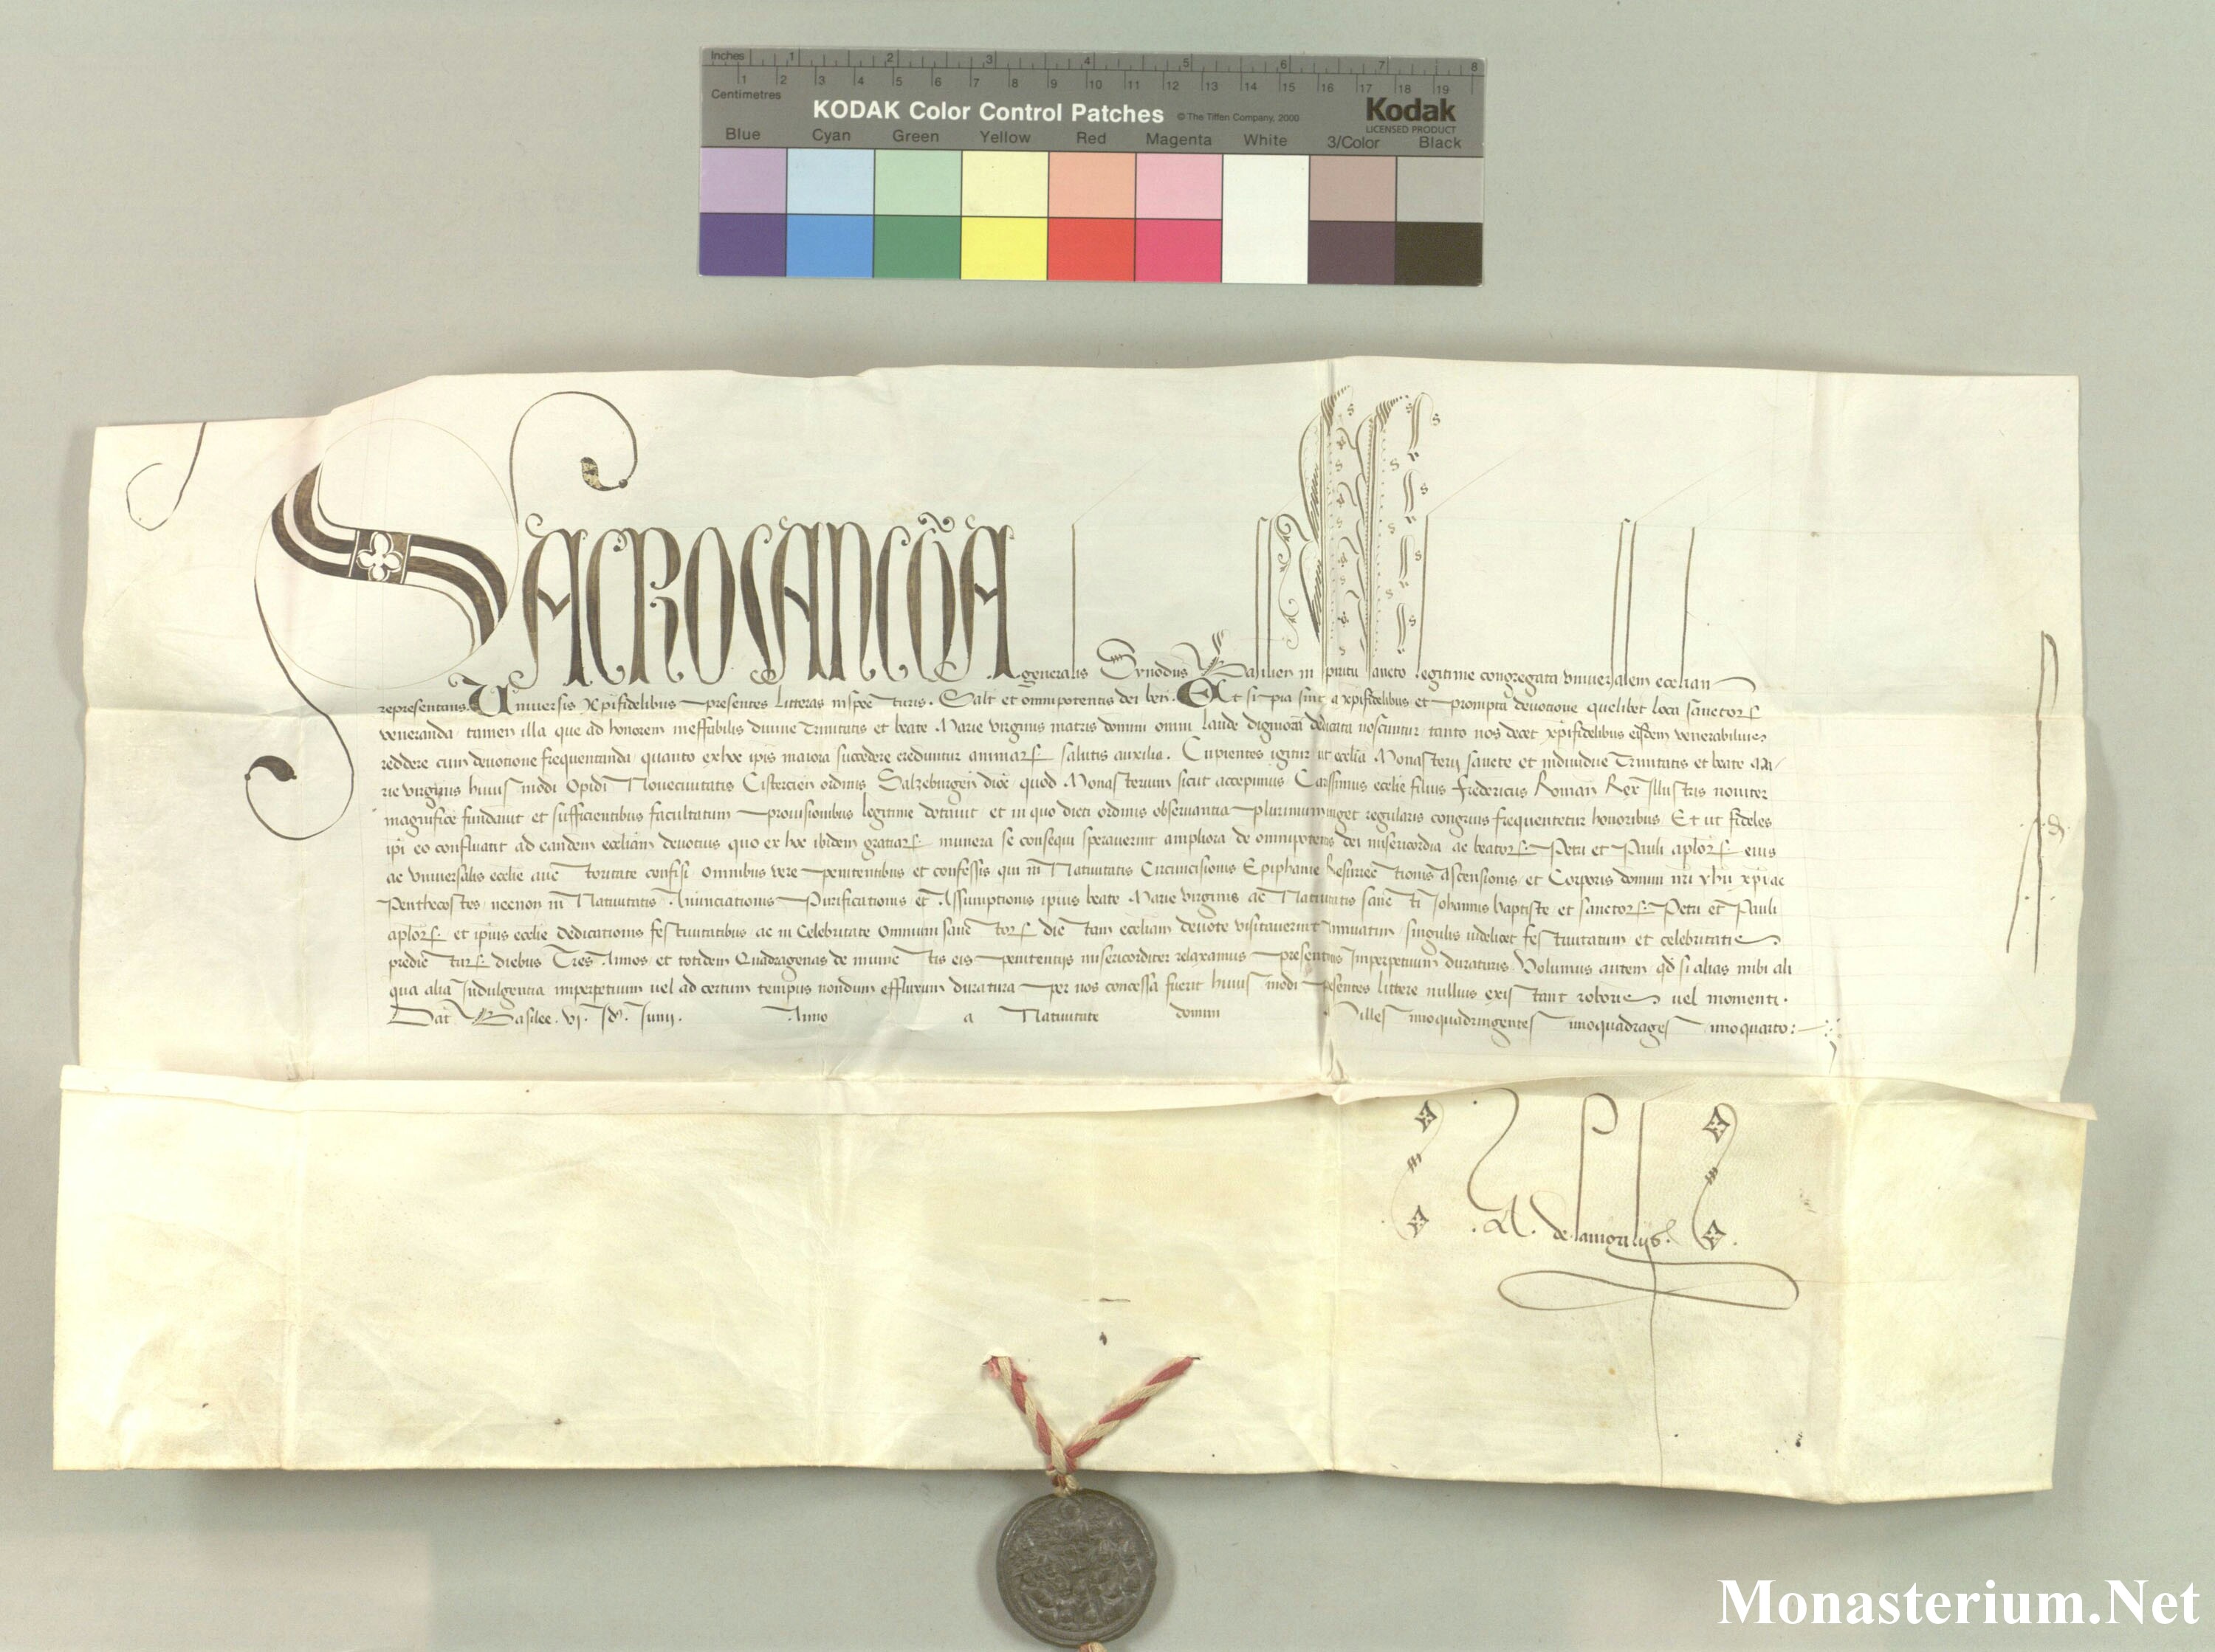 Inches 1 2 3 4 5 6 7 8
1 2 3 4 5 6 7 8 9 10 11 12 13 14 15 16 17 18 19
Centimetres
KODAK Color Control Patches © The Tiffen Company, 2000 Kodak
LICENSED PRODUCT
Blue Cyan Green Yellow Red Magenta White 3/Color Black
SACROSANCTA generalis Synodus Basilien in spiritu sancto legitime congregata universalem eccliam
representans. Universis Xpifidelibus presentes litteras inspecturis. Salt et omnipotentis dei ben. Et si pia sint a xpifidelibus et prompta devotione quelibet loca sanctor
veneranda tamen illa que ad honorem ineffabilis divine Trinitatis et beate Marie virginis matris domini omni laude dedicata noscuntur tanto nos decet xpifidelibus eisdem venerabilius
reddere cum devotione frequentanda quanto ex hoc ipis maiora succedere creduntur animar salutis auxilia. Cupientes igitur ut ecclia Monasterij sancte et individue Trinitatis et beate Ma
rie virginis huiusmodi Opidi Novecivitatis Cistercien ordinis Salzeburgen dioc quod Monasterium sicut accepimus Carissimus ecclie filius Fredericus Roman Rex Illustris noviter
magnifice fundavit et sufficientibus facultatum provisionibus legitime dotavit et in quo dicti ordinis observantia plurimum viget regularis congruis frequentetur honoribus Et ut fideles
ipi eo confluant ad eandem eccliam devotius quo ex hoc ibidem gratiar munera se consequi speraverint ampliora de omnipotentis dei misericordia ac beator Petri et Pauli aplor eius
ac universalis ecclie auctoritate confisi omnibus vere penitentibus et confessis qui in Nativitatis Circuncisionis Epiphanie Resurrectionis Ascensionis et Corporis domini nri yhu xpi ac
Penthecostes necnon in Nativitatis Annunciationis Purificationis et Assumptionis ipius beate Marie virginis ac Nativitatis sancti Johannis baptiste et sanctor Petri et Pauli
aplor et ipius ecclie dedicationis festivitatibus ac in celebritate Omnium sanctor dictam eccliam devote visitaverint annuatim singulis videlicet festivitatum et celebritatis
predictar diebus Tres Annos et totidem Quadragenas de iniunctis eis penitentijs misericorditer relaxamus presentibus Imperpetuum duraturis Volumus autem qd si alias inibi ali
qua alia Indulgentia imperpetuum vel ad certum tempus nondum effluxum duratura per nos concessa fuerit huiusmodi presentes littere nullius existant roboris vel momenti.
Dat Basilee. vj. Id. Junij. Anno a Nativitate domini Millesimoquadringentesimoquadragesimoquarto:
Monasterium.Net